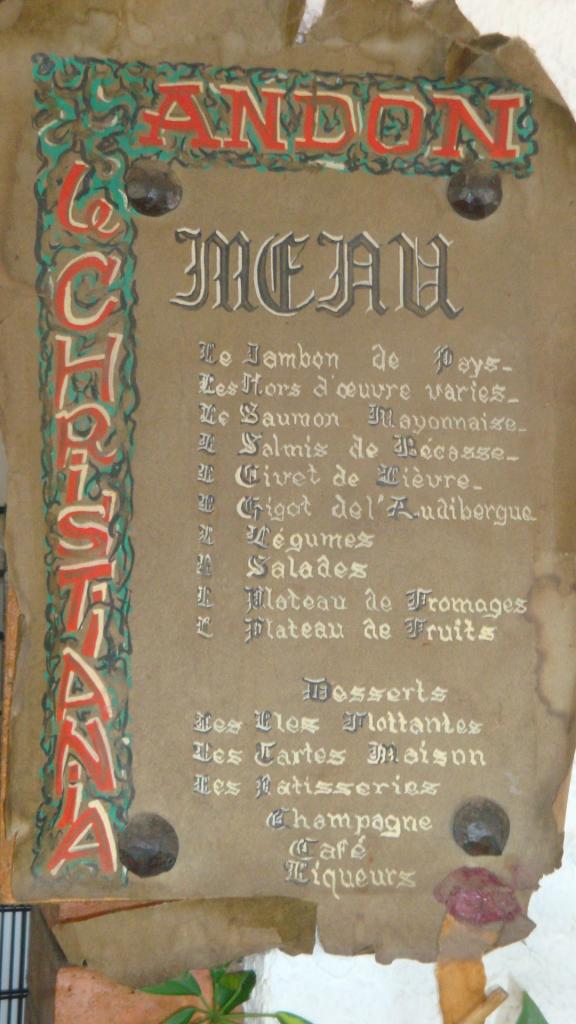 ANDON
Le CHRISTIANIA
MENU
Le Jambon de Pays_
Les Hors d'œuvre varies_
Le Saumon Mayonnaise_
L Salmis de Bécasse_
L Civet de Lièvre_
L Gigot de l'Audibergue
L Légumes
L Salades
L Plateau de Fromages
L Plateau de Fruits
Desserts
Les Iles Flottantes
Les Tartes Maison
Les Patisseries
Champagne
Café
Liqueurs